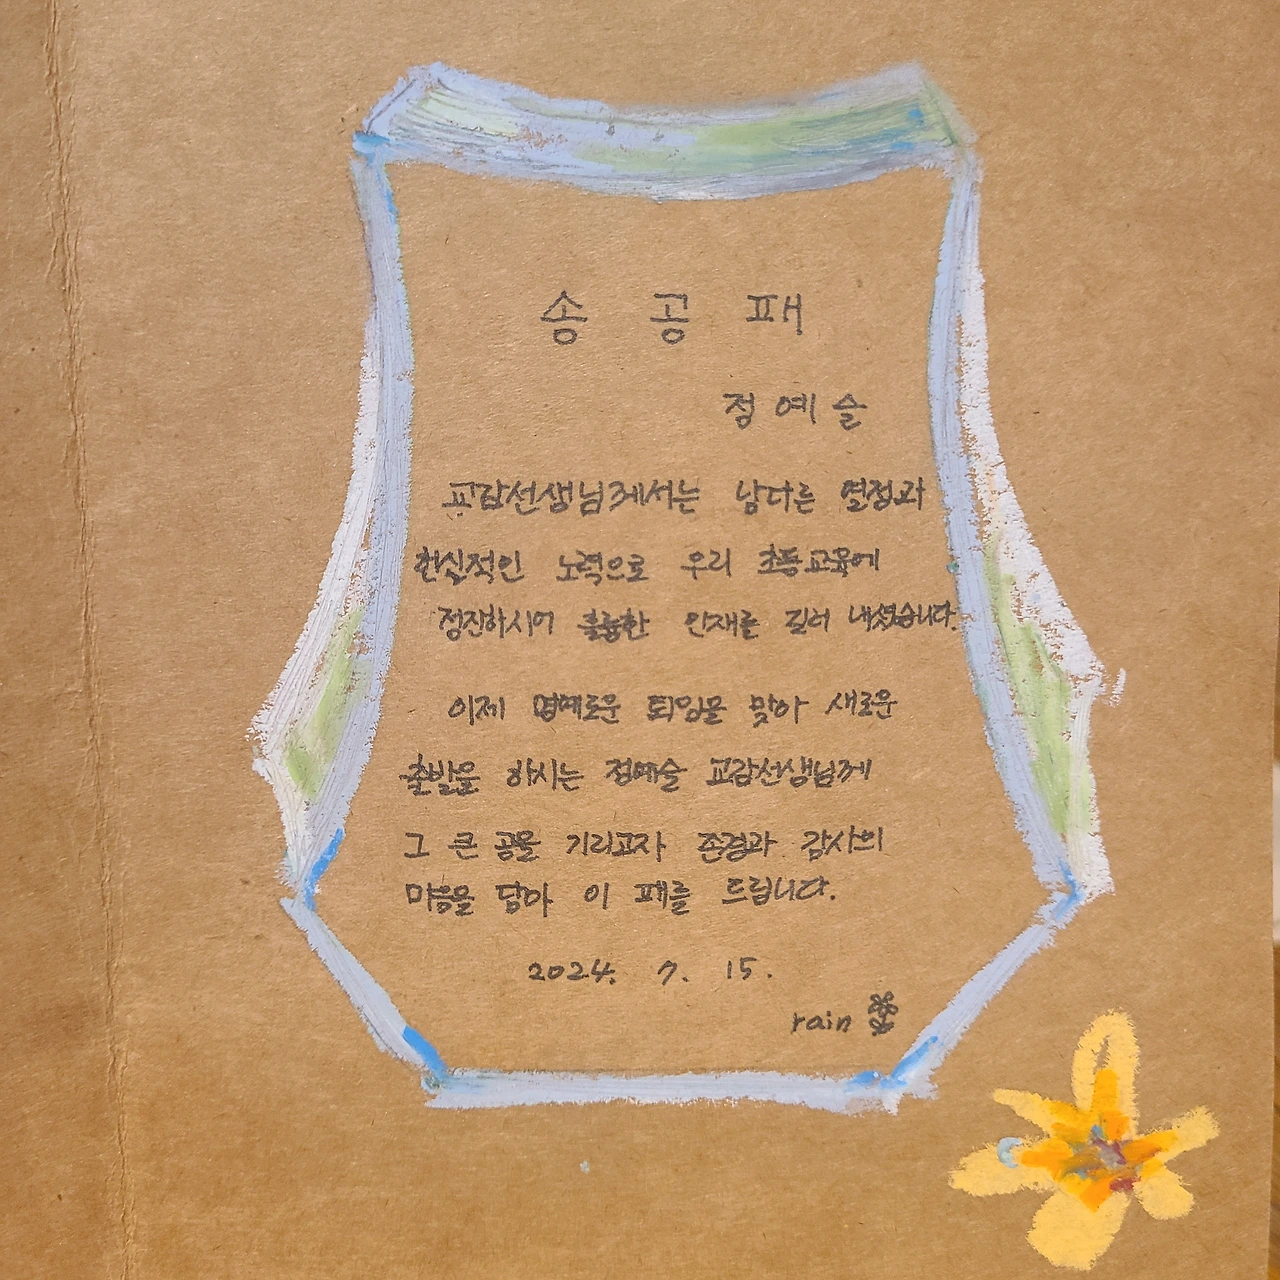 송 공 패
정 예 슬
교감선생님께서는 남다른 열정과
헌신적인 노력으로 우리 초등교육에
정진하시어 훌륭한 인재를 길러 내셨습니다.
이제 명예로운 퇴임을 맞아 새로운
출발을 하시는 정예슬 교감선생님께
그 큰 공을 기리고자 존경과 감사의
마음을 담아 이 패를 드립니다.
2024. 7. 15.
rain